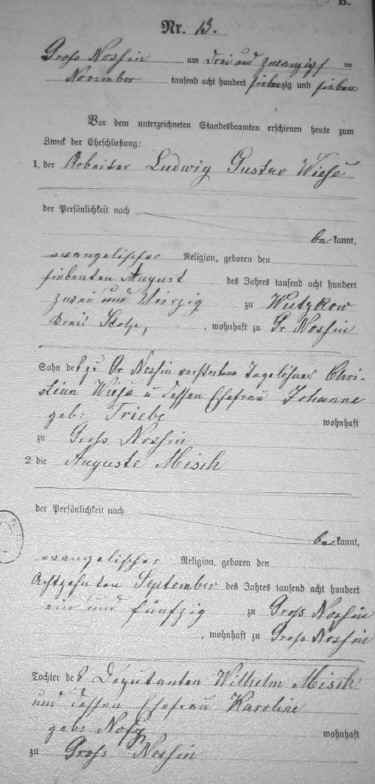 B.
Nr. 13.
Gross Nossin am drei und zwanzigsten
November tausend acht hundert siebenzig und sieben
Vor dem unterzeichneten Standesbeamten erschienen heute zum
Zweck der Eheschließung:
1. der Arbeiter Ludwig Gustav Wiese
der Persönlichkeit nach
bekannt,
evangelischer Religion, geboren den
siebenten August des Jahres tausend acht hundert
zwei und vierzig zu Wutzkow
Kreis Stolp, wohnhaft zu Gr. Nossin
Sohn des zu Gr Nossin verstorbenen Tagelöhner Chri-
stian Wiese u dessen Ehefrau Johanne
geb: Triebe wohnhaft
zu Gross Nossin
2. die Auguste Misch
der Persönlichkeit nach
bekannt,
evangelischer Religion, geboren den
Achtzehnten September des Jahres tausend acht hundert
ein und fünfzig zu Gross Nossin
, wohnhaft zu Gross Nossin
Tochter des Deputanten Wilhelm Misch
und dessen Ehefrau Karoline
geb: wohnhaft
zu Gross Nossin